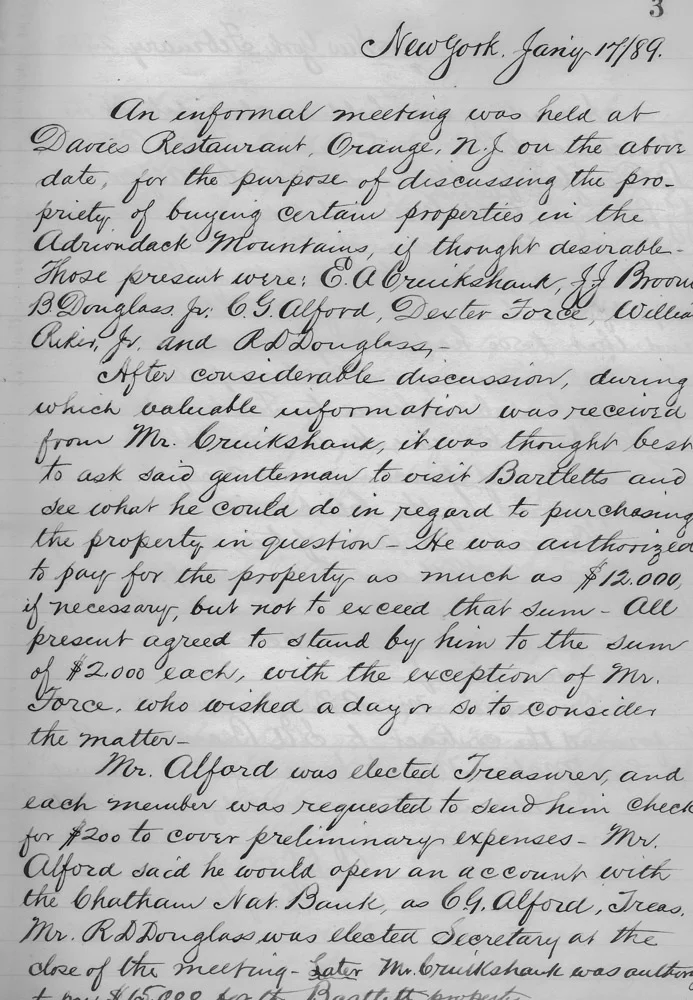 3
New York. Jan'y 17/89.
An informal meeting was held at
Davies Restaurant, Orange, N.J. on the above
date, for the purpose of discussing the pro-
priety of buying certain properties in the
Adriondack Mountains, if thought desirable-
Those present were: E.A Cruikshank, J.J Broom
B Douglass Jr, C.G. Alford, Dexter Force, Willia
Riker, Jr. and R D Douglass,-
After considerable discussion, during
which valuable information was received
from Mr. Cruikshank, it was thought best
to ask said gentleman to visit Bartletts and
see what he could do in regard to purchasing
the property in question- He was authorized
to pay for the property as much as $12.000,
if necessary, but not to exceed that sum- All
present agreed to stand by him to the sum
of $2.000 each, with the exception of Mr.
Force, who wished a day or so to consider
the matter-
Mr. Alford was elected Treasurer, and
each member was requested to send him check
for $200 to cover preliminary expenses- Mr.
Alford said he would open an account with
the Chatham Nat. Bank, as C.G. Alford, Treas.
Mr. R D Douglass was elected Secretary at the
close of the meeting- Later Mr. Cruikshank was author
to pay $15.000 for th Bartlett property